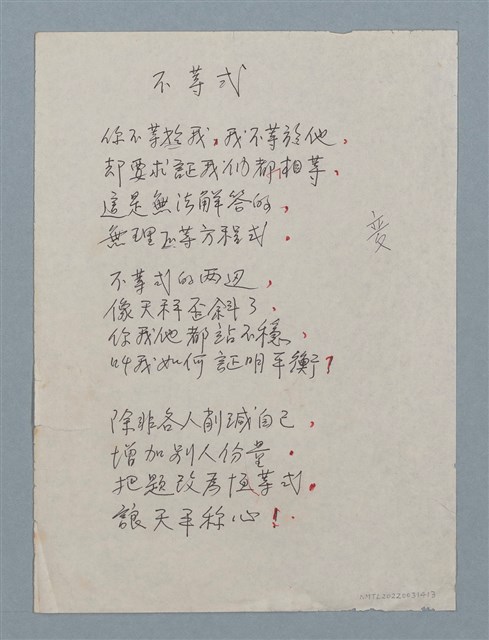 不等式
你不等於我，我不等於他，
却要求証我们都相等，
這是無法解答的，
無理不等方程式．
不等式的两边，
像天秤歪斜了，
你我他都站不穩，
叫我如何証明平衡？
除非各人削減自己，
增加别人份量．
把題改為恆等式．
讓天平称心！
变
NMTL20220031413